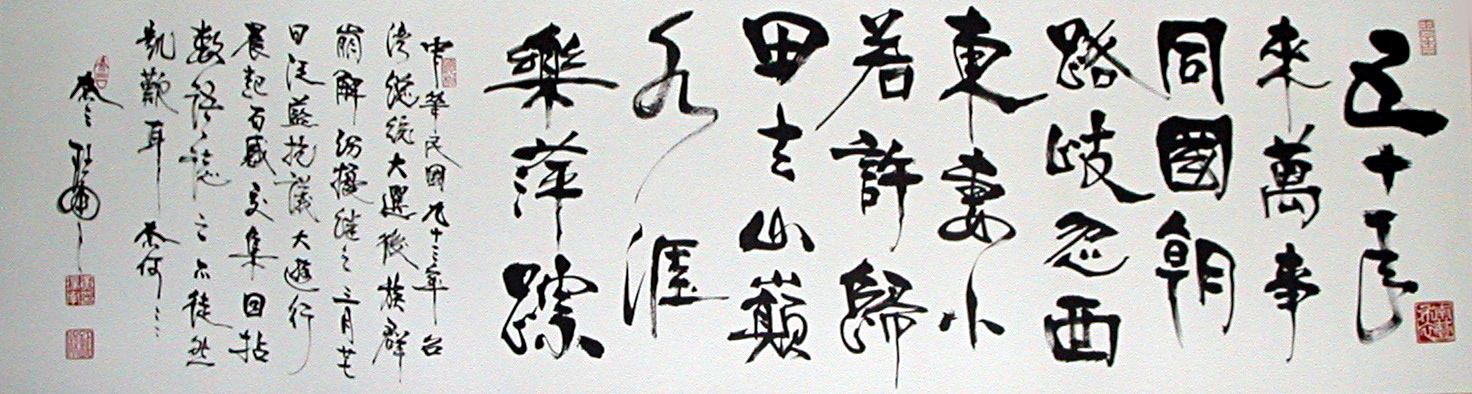 五十年
來萬事
同國朝
路歧忽西
東妻小
若許歸
田去山巔
水涯
樂萍蹤
中華民國九十三年台
灣總統大選後族群
崩解紛擾繼之三月廿七
日泛藍抗議大遊行
晨起百感交集因拈
數語誌之亦徒然
歎耳奈何